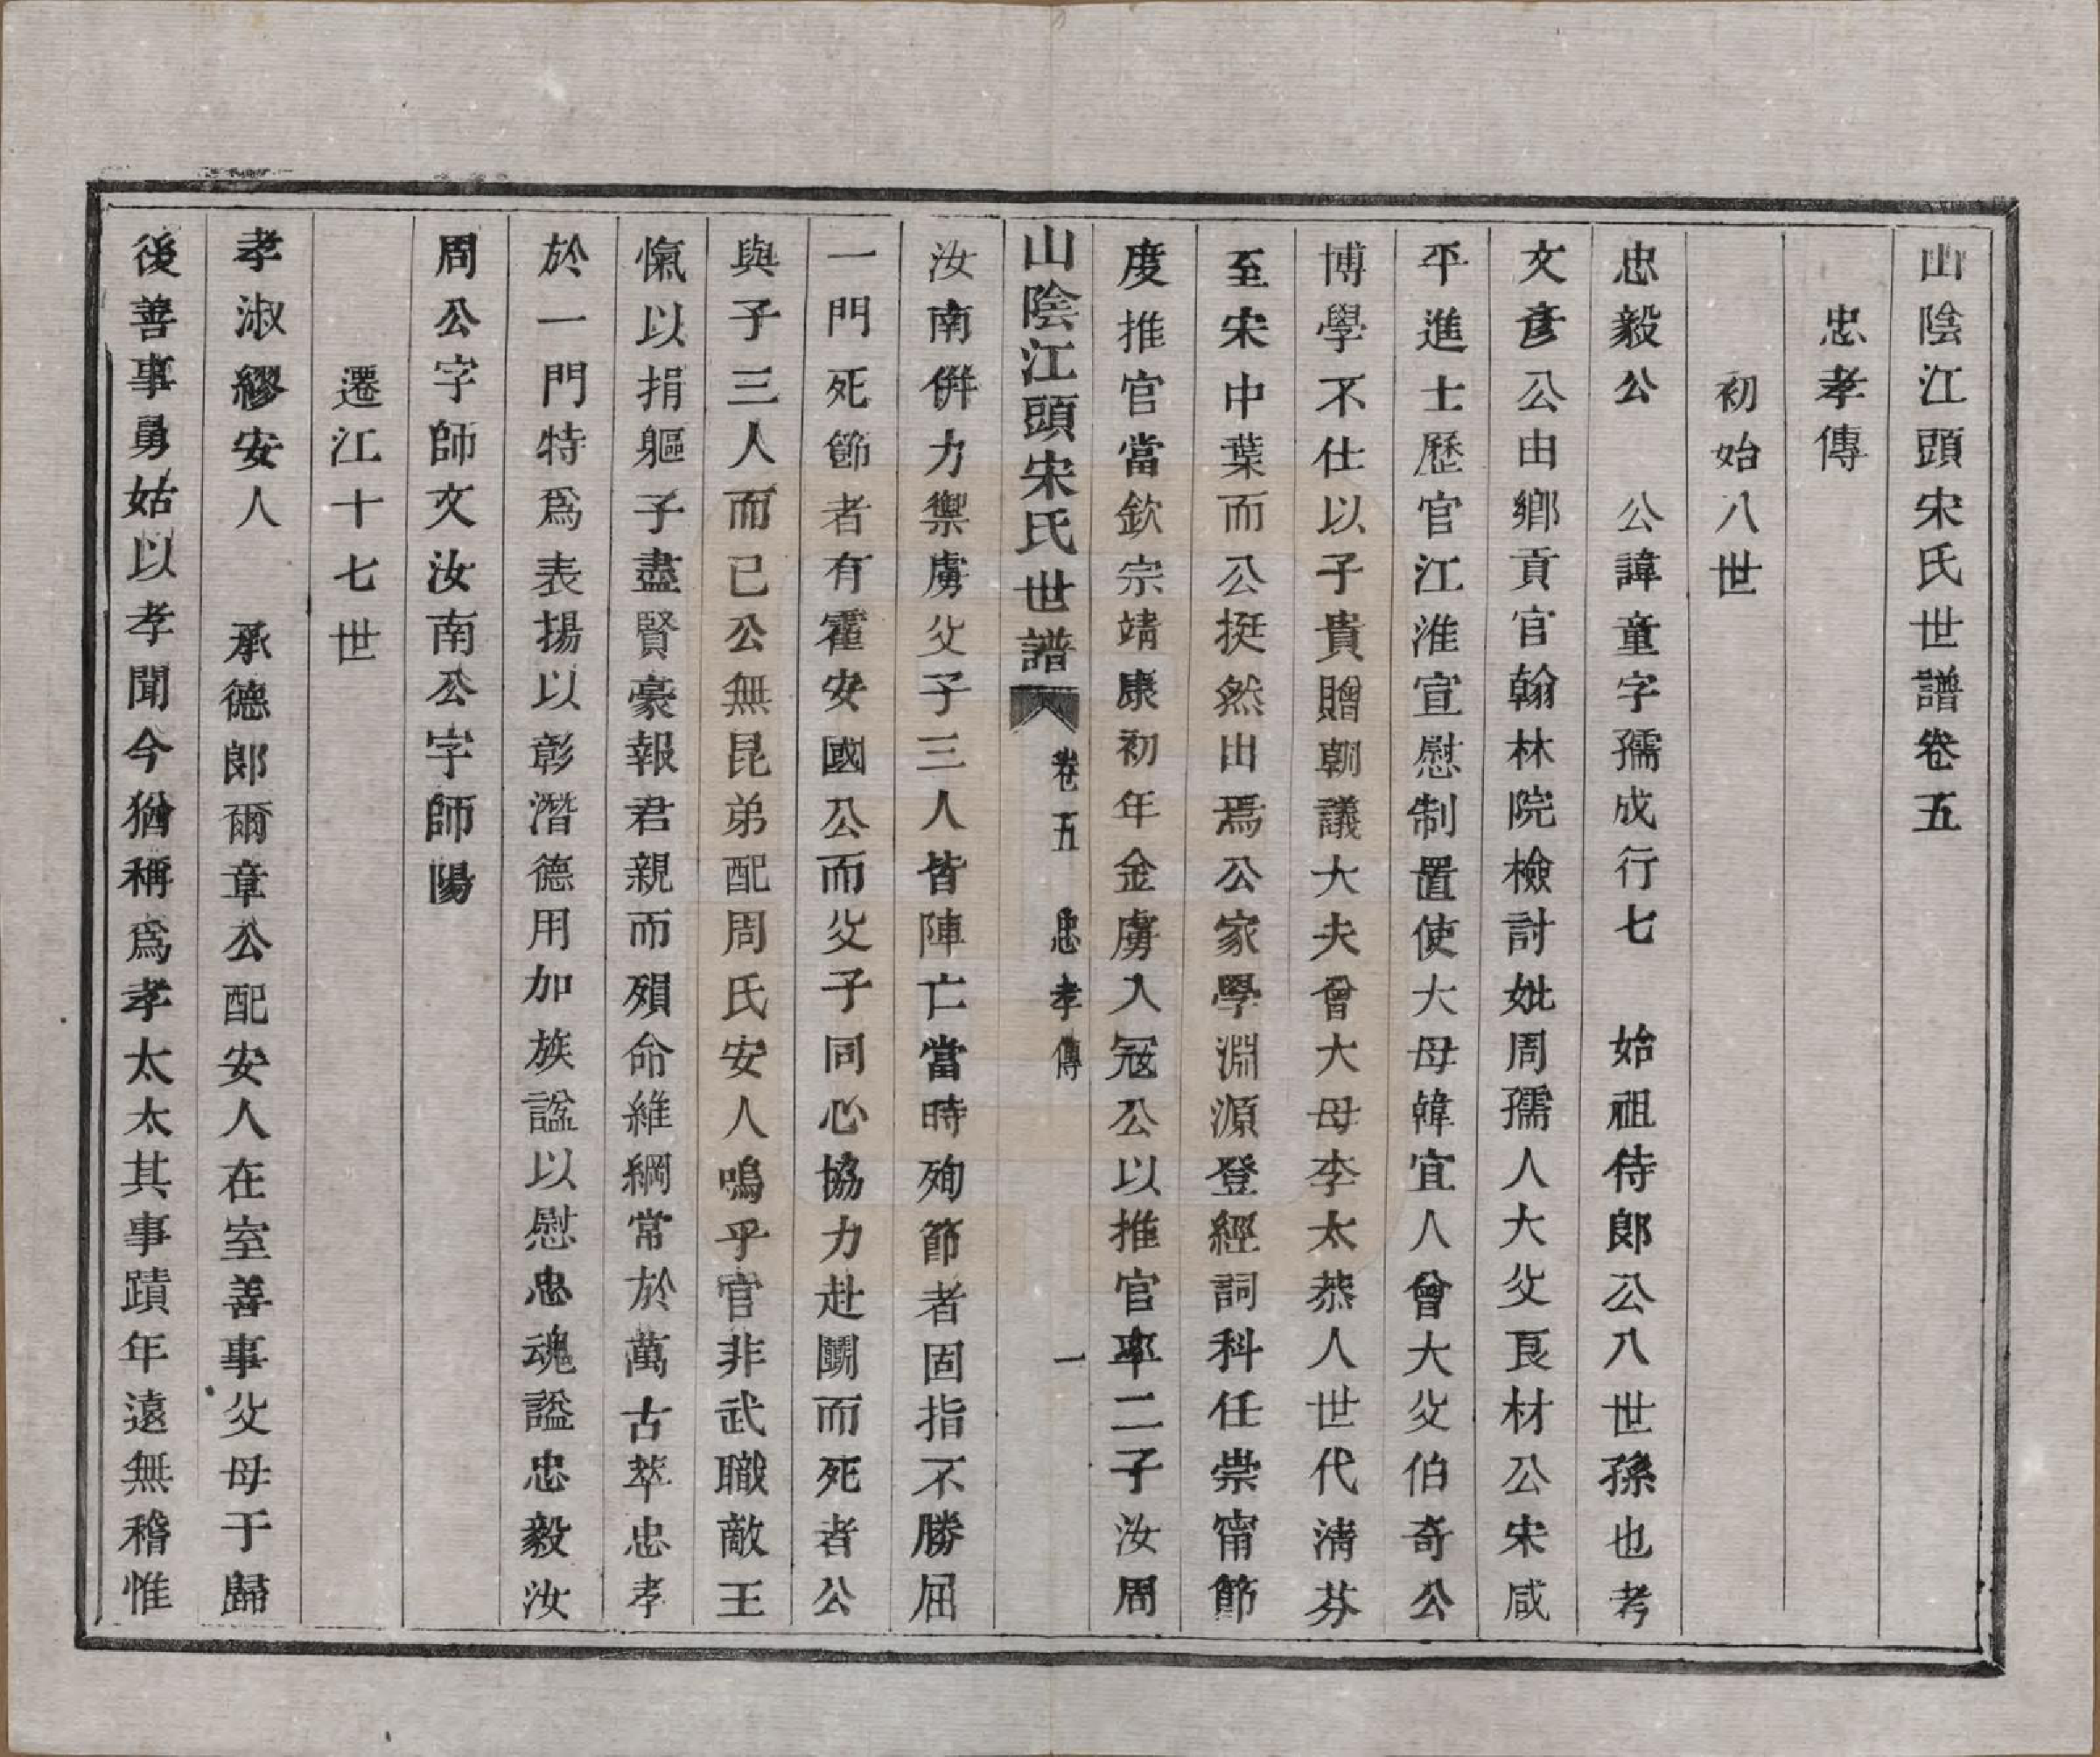 山陰江頭宋氏世譜卷五
忠孝傳
初始八世
忠毅公　公諱童字孺成行七　始祖侍郎公八世孫也考
文彥公由鄉貢官翰林院檢討妣周孺人大父良材公宋咸
平進士歷官江淮宣慰制置使大母韓宜人曾大父伯奇公
博學不仕以子貴贈朝議大夫曾大母李太恭人世代清芬
至宋中葉而公挺然出焉公家學淵源登經詞科任崇甯節
度推官當欽宗靖康初年金虜入寇公以推官率二子汝周
山陰江頭宋氏世譜　卷五　忠孝傳　一
汝南併力禦虜父子三人皆陣亡當時殉節者固指不勝屈
一門死節者有霍安國公而父子同心協力赴鬬而死者公
與子三人而已公無昆弟配周氏安人嗚乎官非武職敵王
愾以捐軀子盡賢豪報君親而殞命維綱常於萬古萃忠孝
於一門特爲表揚以彰潛德用加族諡以慰忠魂謚忠毅汝
周公字師文汝南公字師陽
遷江十七世
孝淑繆安人　承德郎爾章公配安人在室善事父母于歸
後善事舅姑以孝聞今猶稱爲孝太太其事蹟年遠無稽惟